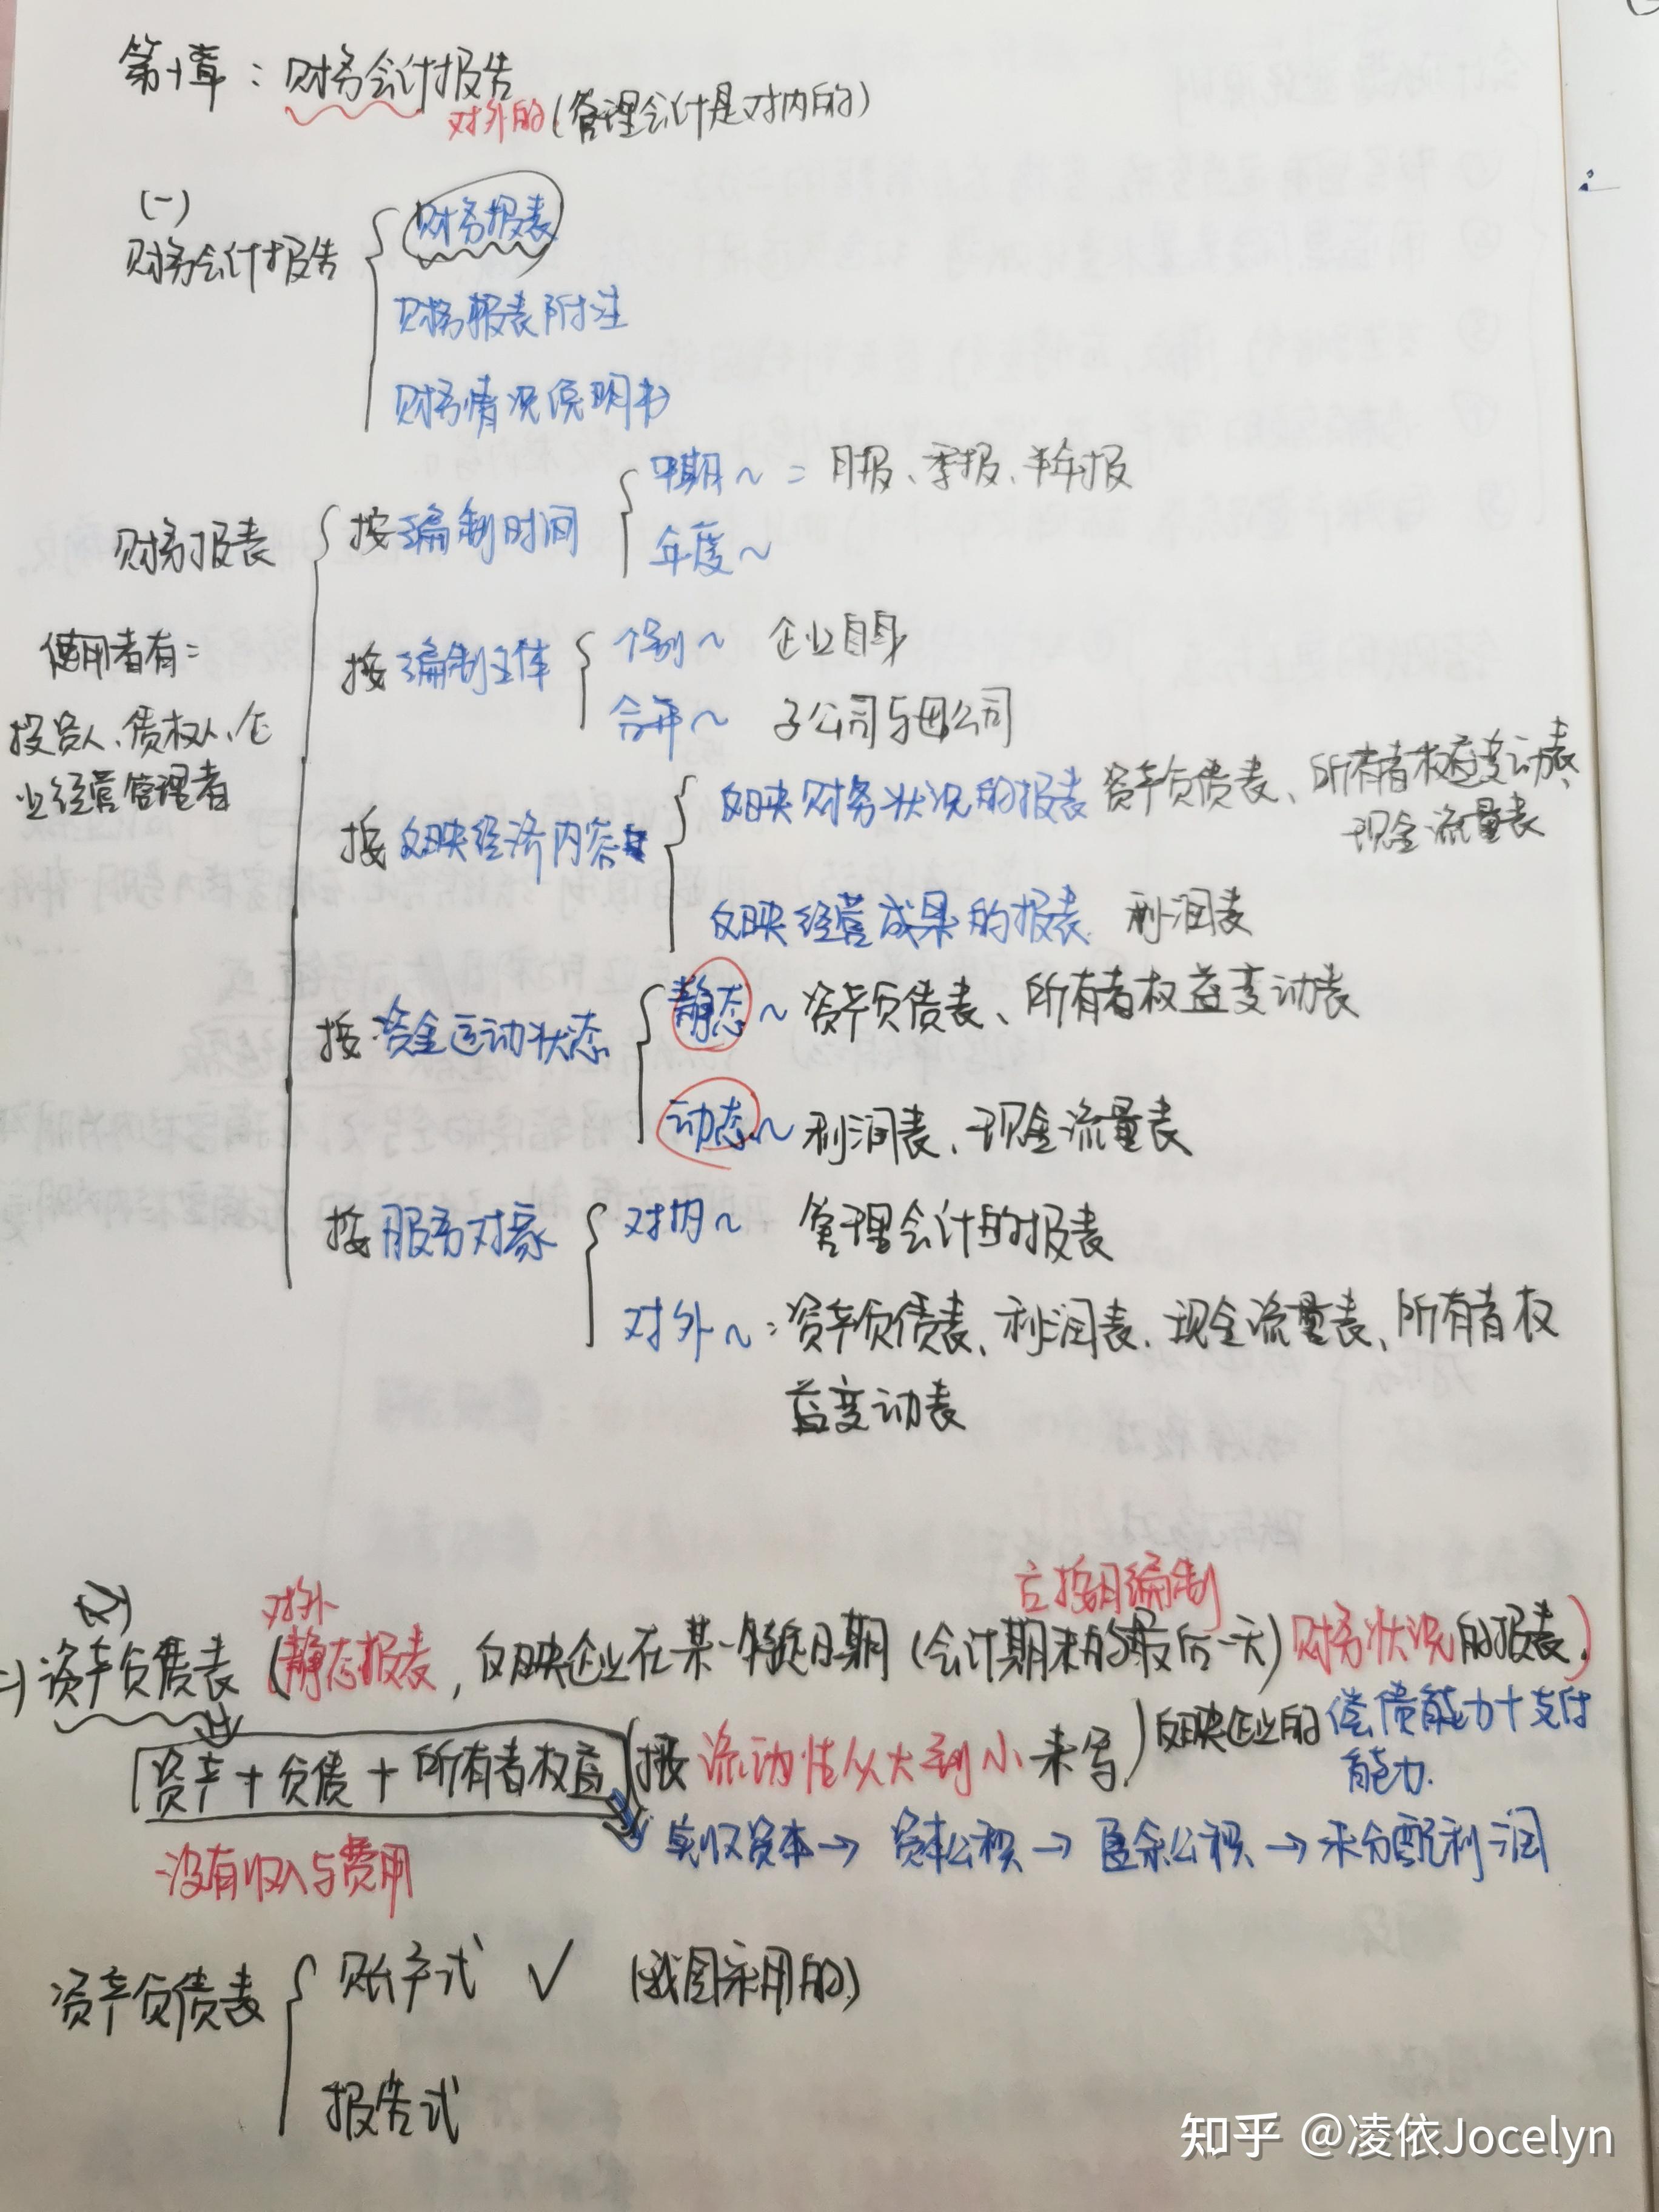 第十章：财务会计报告
对外的(管理会计是对内的)
(一)
财务会计报告
财务报表
财务报表附注
财务情况说明书
财务报表
使用者有：
投资人、债权人、企
业经营管理者
按编制时间
中期～：月报、季报、半年报
年度～
按编制主体
个别～ 企业自身
合并～ 子公司与母公司
按反映经济内容
反映财务状况的报表 资产负债表、所有者权益变动表、
现金流量表
反映经营成果的报表 利润表
按资金运动状态
静态～ 资产负债表、所有者权益变动表
动态～ 利润表、现金流量表
按服务对象
对内～ 管理会计的报表
对外～：资产负债表、利润表、现金流量表、所有者权
益变动表
对外
按月编制
(二)资产负债表(静态报表，反映企业在某一特定日期(会计期末的最后一天)财务状况的报表)
资产+负债+所有者权益(按流动性从大到小来写)反映企业的偿债能力+支付
能力.
实收资本→资本公积→盈余公积→未分配利润
没有收入与费用
资产负债表
账户式 ✓ (我国采用的)
报告式
知乎 @凌依Jocelyn